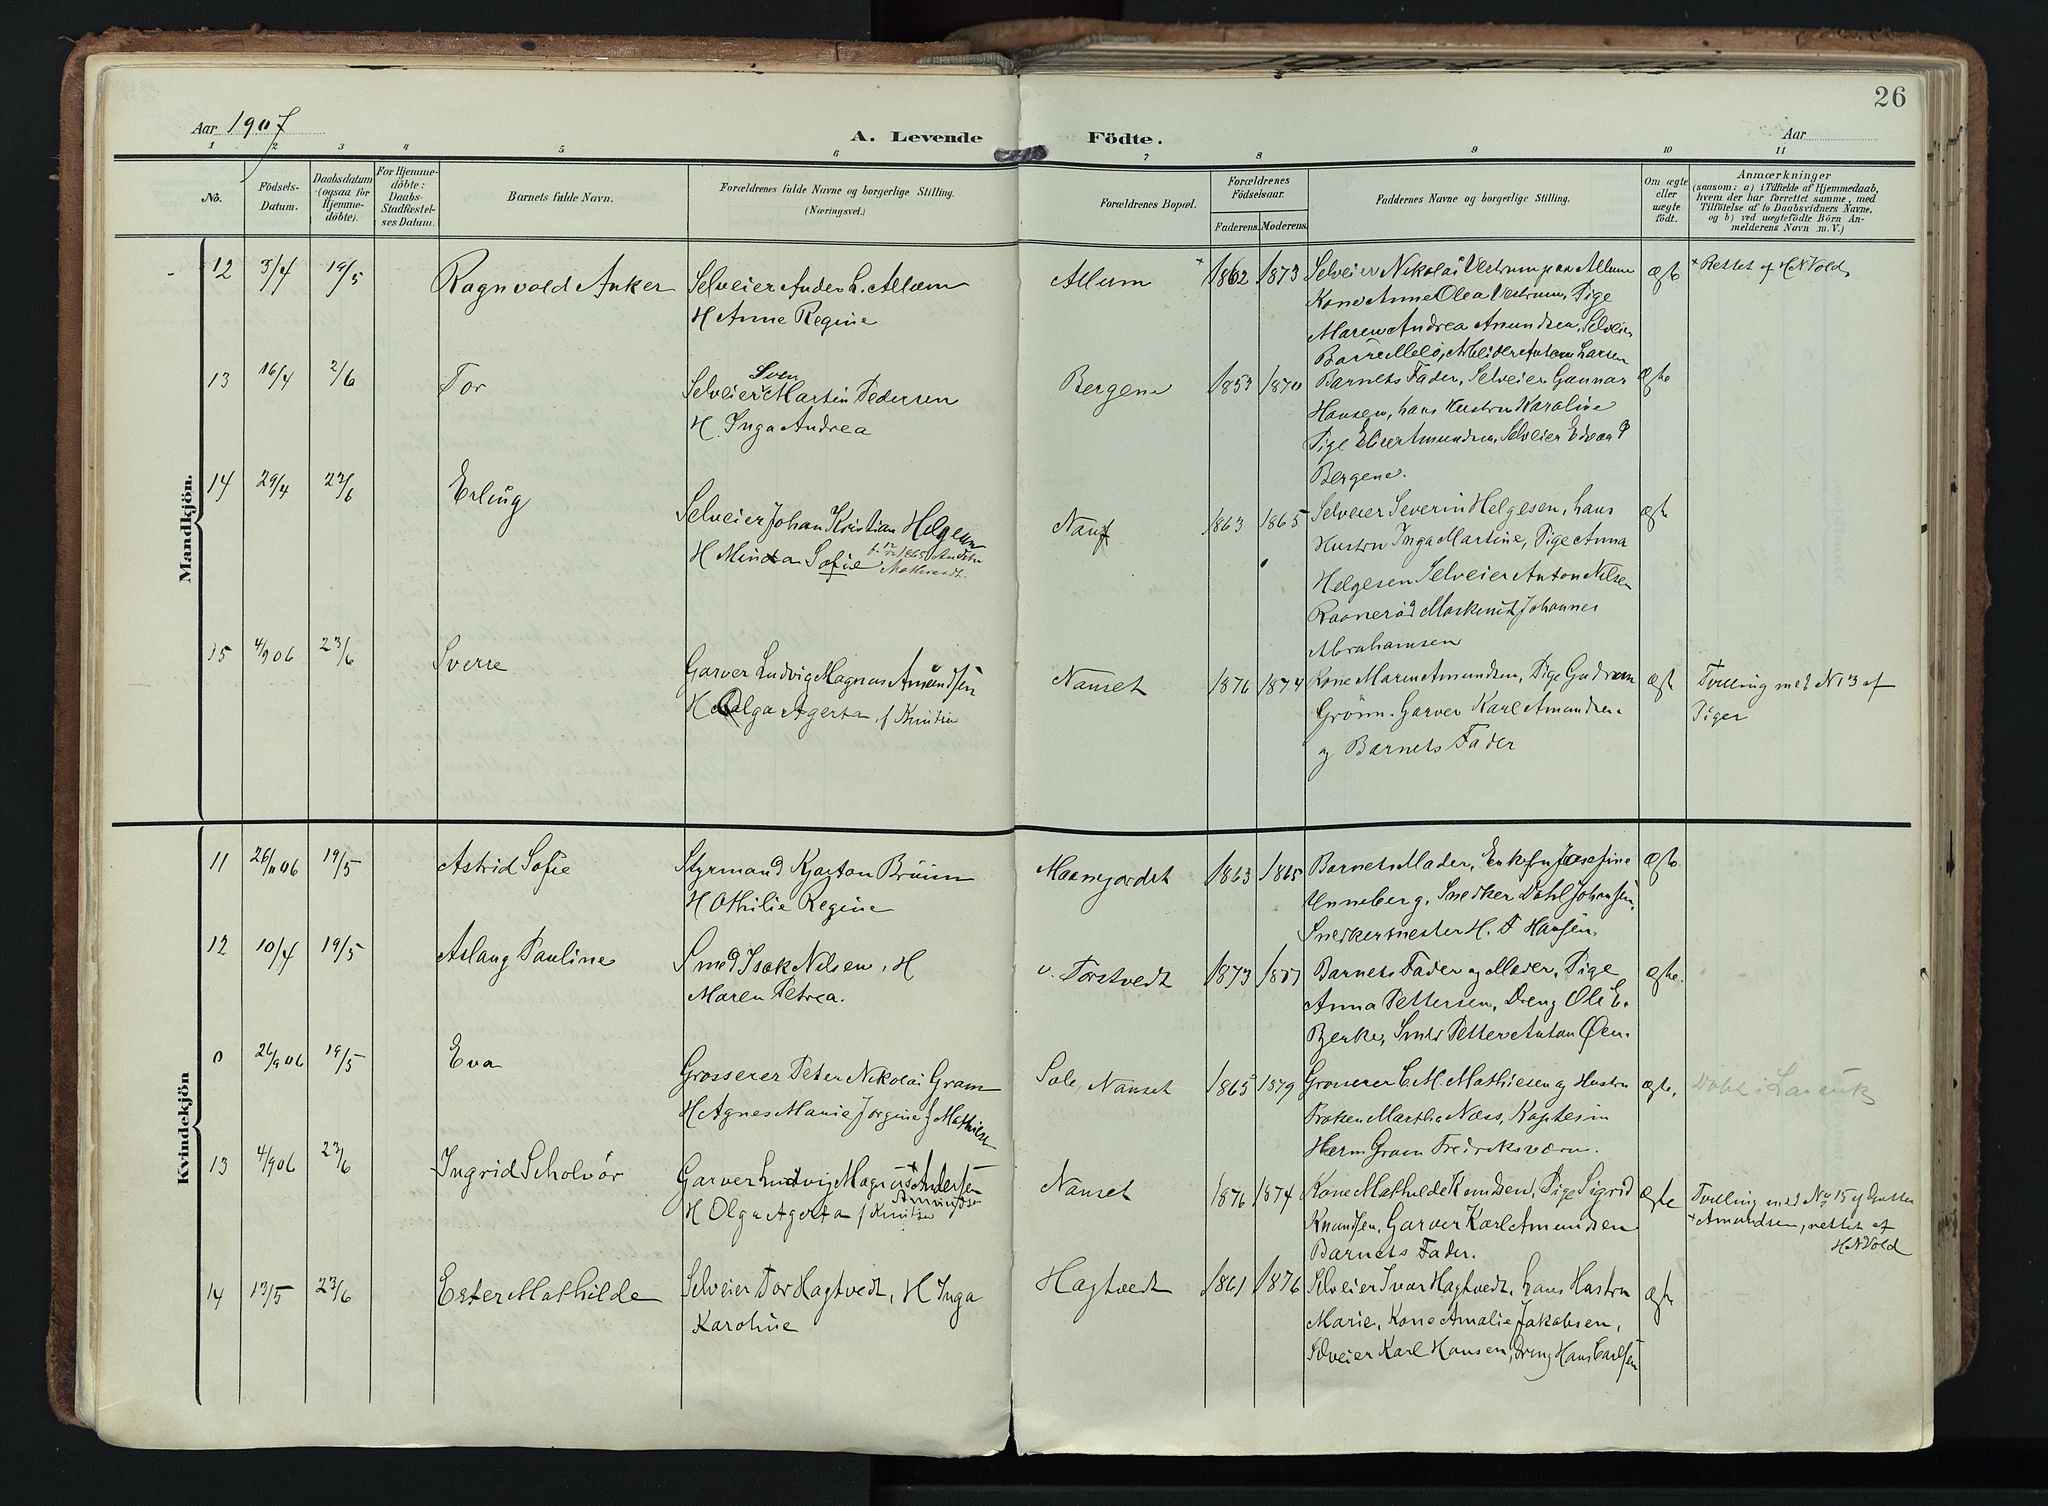 26
Aar 1907
A. Levende Födte.
Aar
1 2 3 4 5 6 7 8 9 10 11
No.
Födsels-Datum.
Daabsdatum (ogsaa for Hjemme-döbte).
For Hjemme-döbte: Daabs-Stadfæstel-ses Datum.
Barnets fulde Navn.
Forældrenes fulde Navne og borgerlige Stilling. (Næringsvei.)
Forældrenes Bopæl.
Forældrenes Födselsaar.
Faderens. Moderens.
Faddernes Navne og borgerlige Stilling.
Om ægte eller uægte födt.
Anmærkninger
(saasom: a) i Tilfælde af Hjemmedaab,
hvem der har forrettet samme, med
Tilföielse af to Daabsvidners Navne,
og b) ved uægtefödte Börn An-
melderens Navn m. V.)
Mandkjön.
12 3/4 19/5 Ragnvold Anker Selveier Anders L. Allum Allum + 1862 1873 Selveier Nikolai Vestrum paa Allum ægte + Rettet af H N Vold
H Anne Regine Kone Anne Olea Vestrum, Pige
Maren Andrea Amundsen, Selveier
Barre Melø, Arbeider Anton Larsen
13 16/4 2/6 Tor Sven
Selveier Martin Pedersen Bergene 1853 1870 Barnets Fader, Selveier Gunnar ægte
H. Inga Andrea Hansen, hans Hustru Karoline
Pige Amundsen, Selveier
Bergene.
14 29/4 23/6 Erling Selveier Johan Kristian Helgesen Nans 1863 1865 Selveier Severin Helgesen, hans ægte
H Minda Sofie Hustru Inga Martine, Pige Anna
Helgesen Selveier Anton Nilsen
Raanerød Maskinist Johannes
Abrahamsen
15 4/9 06 23/6 Sverre Garver Ludvig Magnus Amundsen Nanset 1876 1874 Kone Maren Amundsen, Pige Gudrun ægte Tvilling med N 13 af
H Olga Agerta f Knutsen Grönn. Garver Karl Amundsen Piger
og Barnets Fader
Kvindekjön
11 26/11 06 19/5 Astrid Sofie Styrmand Kjartan Bruun 1863 1865 Barnets Moder, Enkefru Josefine ægte
H Othilie Regine Unneberg, Snedker Dahl Johansen,
Snedkermester H. F Hansen.
12 10/4 19/5 Aslaug Pauline Smed Isak Nilsen, H v. Torstvedt 1873 1877 Barnets Fader og Moder, Pige ægte.
Maren Petrea. Anna Pettersen, Dreng Ole E.
Bjerke, Smed Petter Anton Øen.
0 26/9 06 19/5 Eva Grosserer Peter Nikolai Gram Sole, Nanset 1865 1879 Grosserer C. M. Mathiesen og Hustru ægte. Döbt i Larvik
H Agnes Marie Jörgine f Mathiesen Fröken Martha Næss, Kaptein
Herm Gram Fredriksværn.
13 4/9 06 23/6 Ingrid Scholvör Garver Ludvig Magnus + Andersen Nanset 1876 1874 Kone Mathilde Knudsen, Pige Sigrid ægte Tvilling med No 15 af Gutter
Amundsen
H Olga Agerta f Knutsen Knudsen, Garver Karl Amundsen + Amundsen, rettet af
Barnets Fader. H N Vold
14 13/5 23/6 Ester Mathilde Selveier Tor Hagtvedt, H Inga Hagtvedt 1861 1876 Selveier Ivar Hagtvedt, hans Hustru ægte
Karoline Marie, Kone Amalie Jakobsen,
Selveier Karl Hansen, Dreng Hans Carlsen